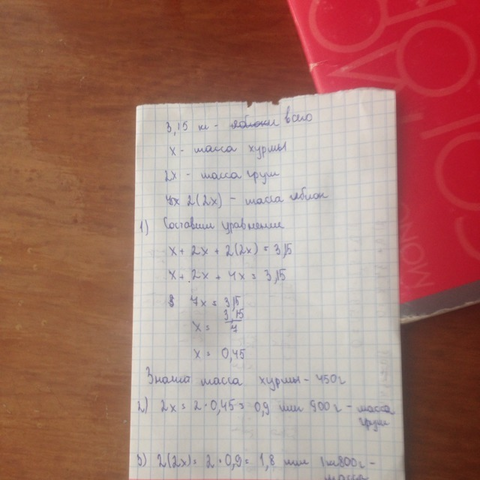 3,15 кг - всего
x - масса хурмы
2x - масса груш
2(2x) - масса яблок
1) Составим уравнение
x + 2x + 2(2x) = 3,15
x + 2x + 4x = 3,15
7x = 3,15
x = 3,15/7
x = 0,45
Значит масса хурмы - 450 г
2) 2x = 2 · 0,45 = 0,9 или 900 г - масса
груш
3) 2(2x) = 2 · 0,9 = 1,8 или 1 кг 800 г -
масса
MONO